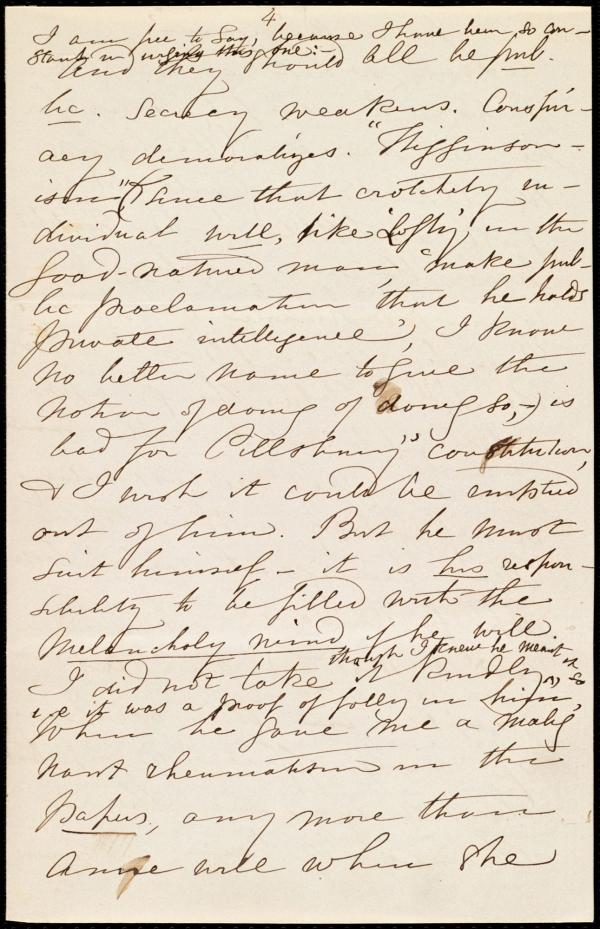 4
I am free to say, because I have been so con-
stantly in urging this one:-
and they should all be pub-
lic. Secrecy weakens. Conspir-
acy demoralizes. "Higginson-
ism" (since that crotchety in-
dividual will, like 'Lofty' in the
Good-natured man, 'make pub-
lic proclamation that he holds
private intelligence', I know
no better name to give the
notion of doing of doing so,-) is
bad for Pillsbury's constitution,
& I wish it could be emptied
out of him. But he must
suit himself - it is his respon-
sibility to be filled with the
Melancholy wind if he will.
though I knew he meant it so
I did not take it kindly,
i.e. it was a proof of folly in him,
when he gave me a malig
nant rheumatism in the
papers, any more than
Anne will when she